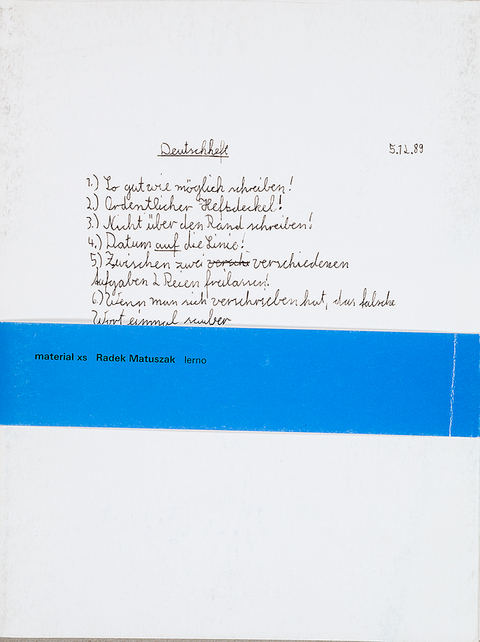 Deutschheft
5.12.89
1.) So gut wie möglich schreiben!
2.) Ordentlicher Heftdeckel!
3.) Nicht über den Rand schreiben!
4.) Datum auf die Linie!
5.) Zwischen zwei verschi verschiedenen
Aufgaben 2 Reien freilassen!
6.) Wenn man sich verschrieben hat, das falsche
Wort einmal sauber
material xs Radek Matuszak lerno